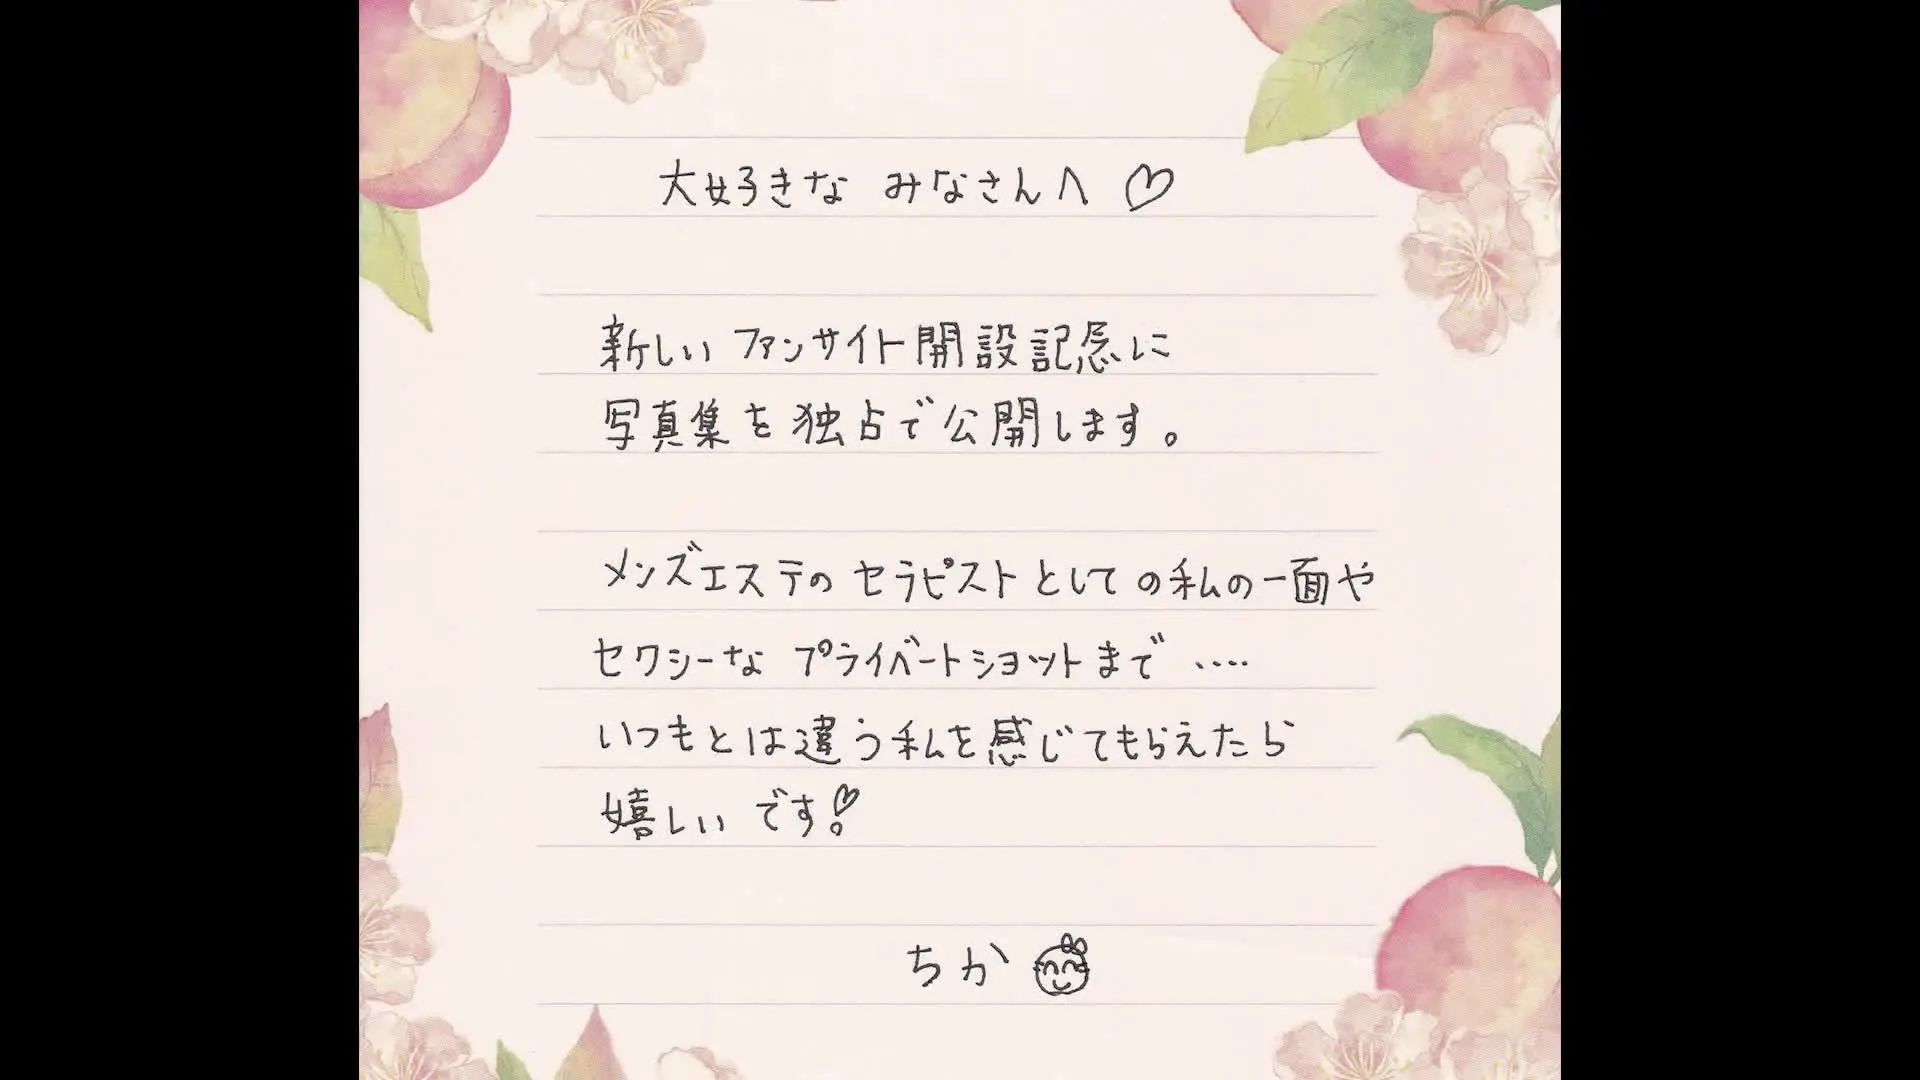 大好きな みなさんへ♡
新しいファンサイト開設記念に
写真集を独占で公開します。
メンズエステのセラピストとしての私の一面や
セクシーな プライベートショットまで ‥‥
いつもとは違う私を感じてもらえたら
嬉しいです!
ちか